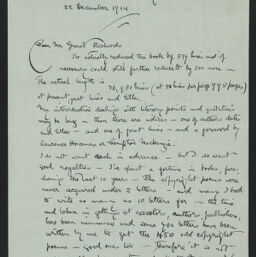 22 December 1914
Dear Mr Grant Richards
I've actually reduced the book by 579 lines and if
necessary could still further reduce it by 500 more —
The actual length is
36,950 lines (at 38 lines per page 995 pages)
at present just lines and titles.
My introduction dealing with literary points and quotations
may be long — then there are indices — one of authors dates
and titles — and one of first lines — and a foreword by
Laurence Housman or Compton Mackenzie.
I do not want cash in advance — but I do want
good royalties — I've spent a fortune in books for
during the last 10 years — the copyright poems were
never acquired under 2 letters — and many I had
to write as many as 10 letters for — the time
and labor in getting at executors, authors publishers,
has been immense and some 900 letters have been
written by me to get the 450 odd copyright
poems — good ones too — therefore it is not